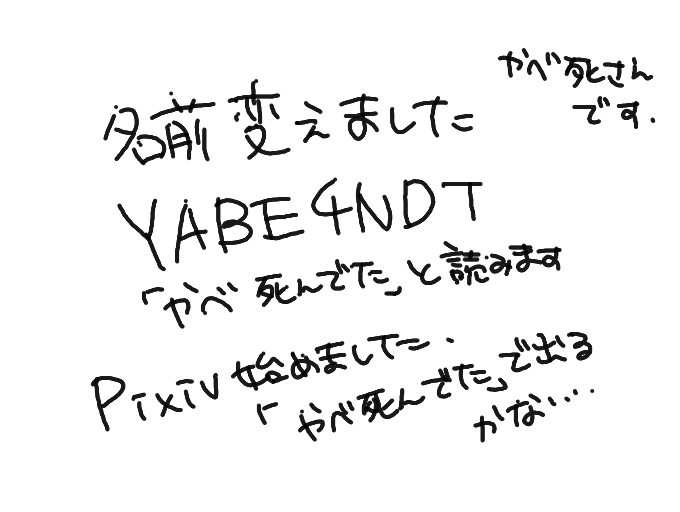 やべ死さん
です.
名前変えました
YABE4NDT
「やべ死んでた」と読みます
Pixiv始めました.
「やべ死んでた」で出る
かな.....